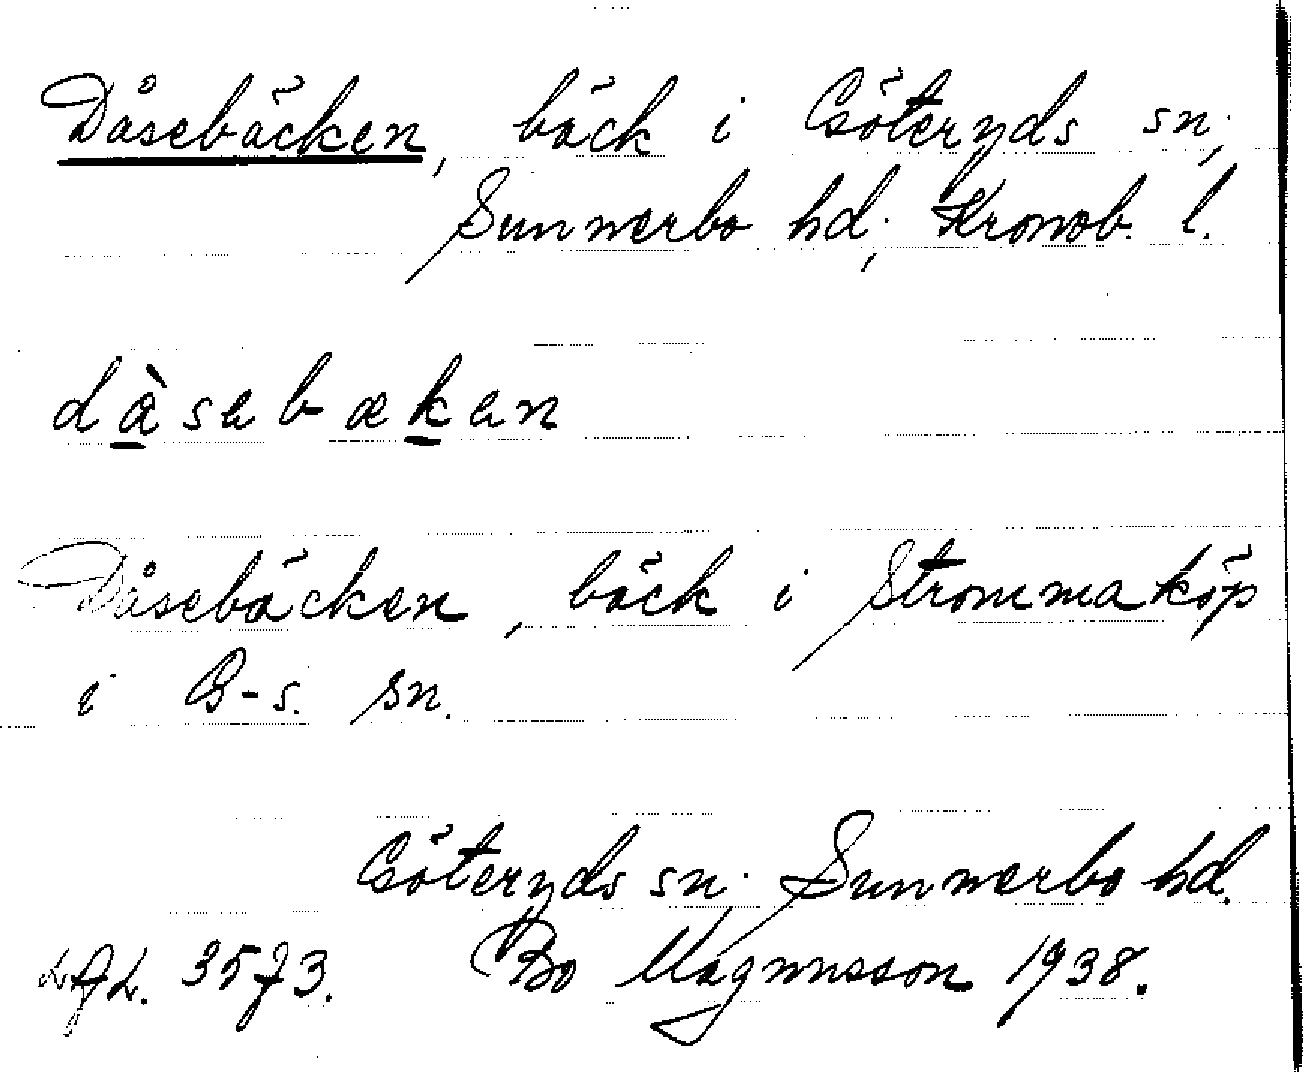 Dåsebäcken, bäck i Göteryds sn.,
Sunnerbo hd., Kronob. l.
dàsebæken
Dåsebäcken, bäck i Strommaköp
i G-s. sn.
Göteryds sn., Sunnerbo hd.
3573. Bo Magnusson 1938.